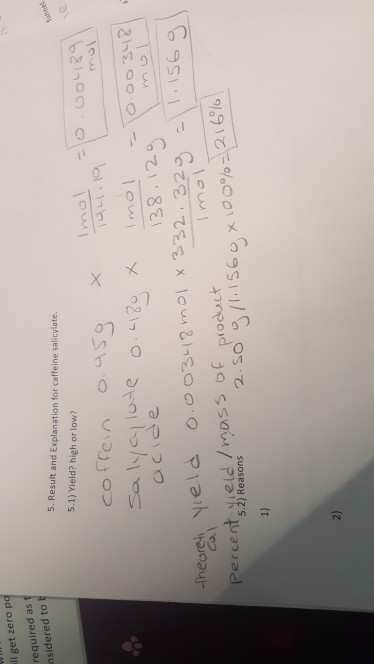 ll get zero po
required as t
nsidered to b
funnel.
5. Result and Explanation for caffeine salicylate.
5.1) Yield? high or low?
coffein 0.95g × 1mol / 194.19 = 0.00489 mol
Salycylate acide 0.480g × 1mol / 138.12g = 0.00348 mol
theoretical yield 0.00348mol × 332.32g / 1mol = 1.156g
percent yield/mass of product 2.50 g/1.156g × 100% = 216%
5.2) Reasons
1)
2)